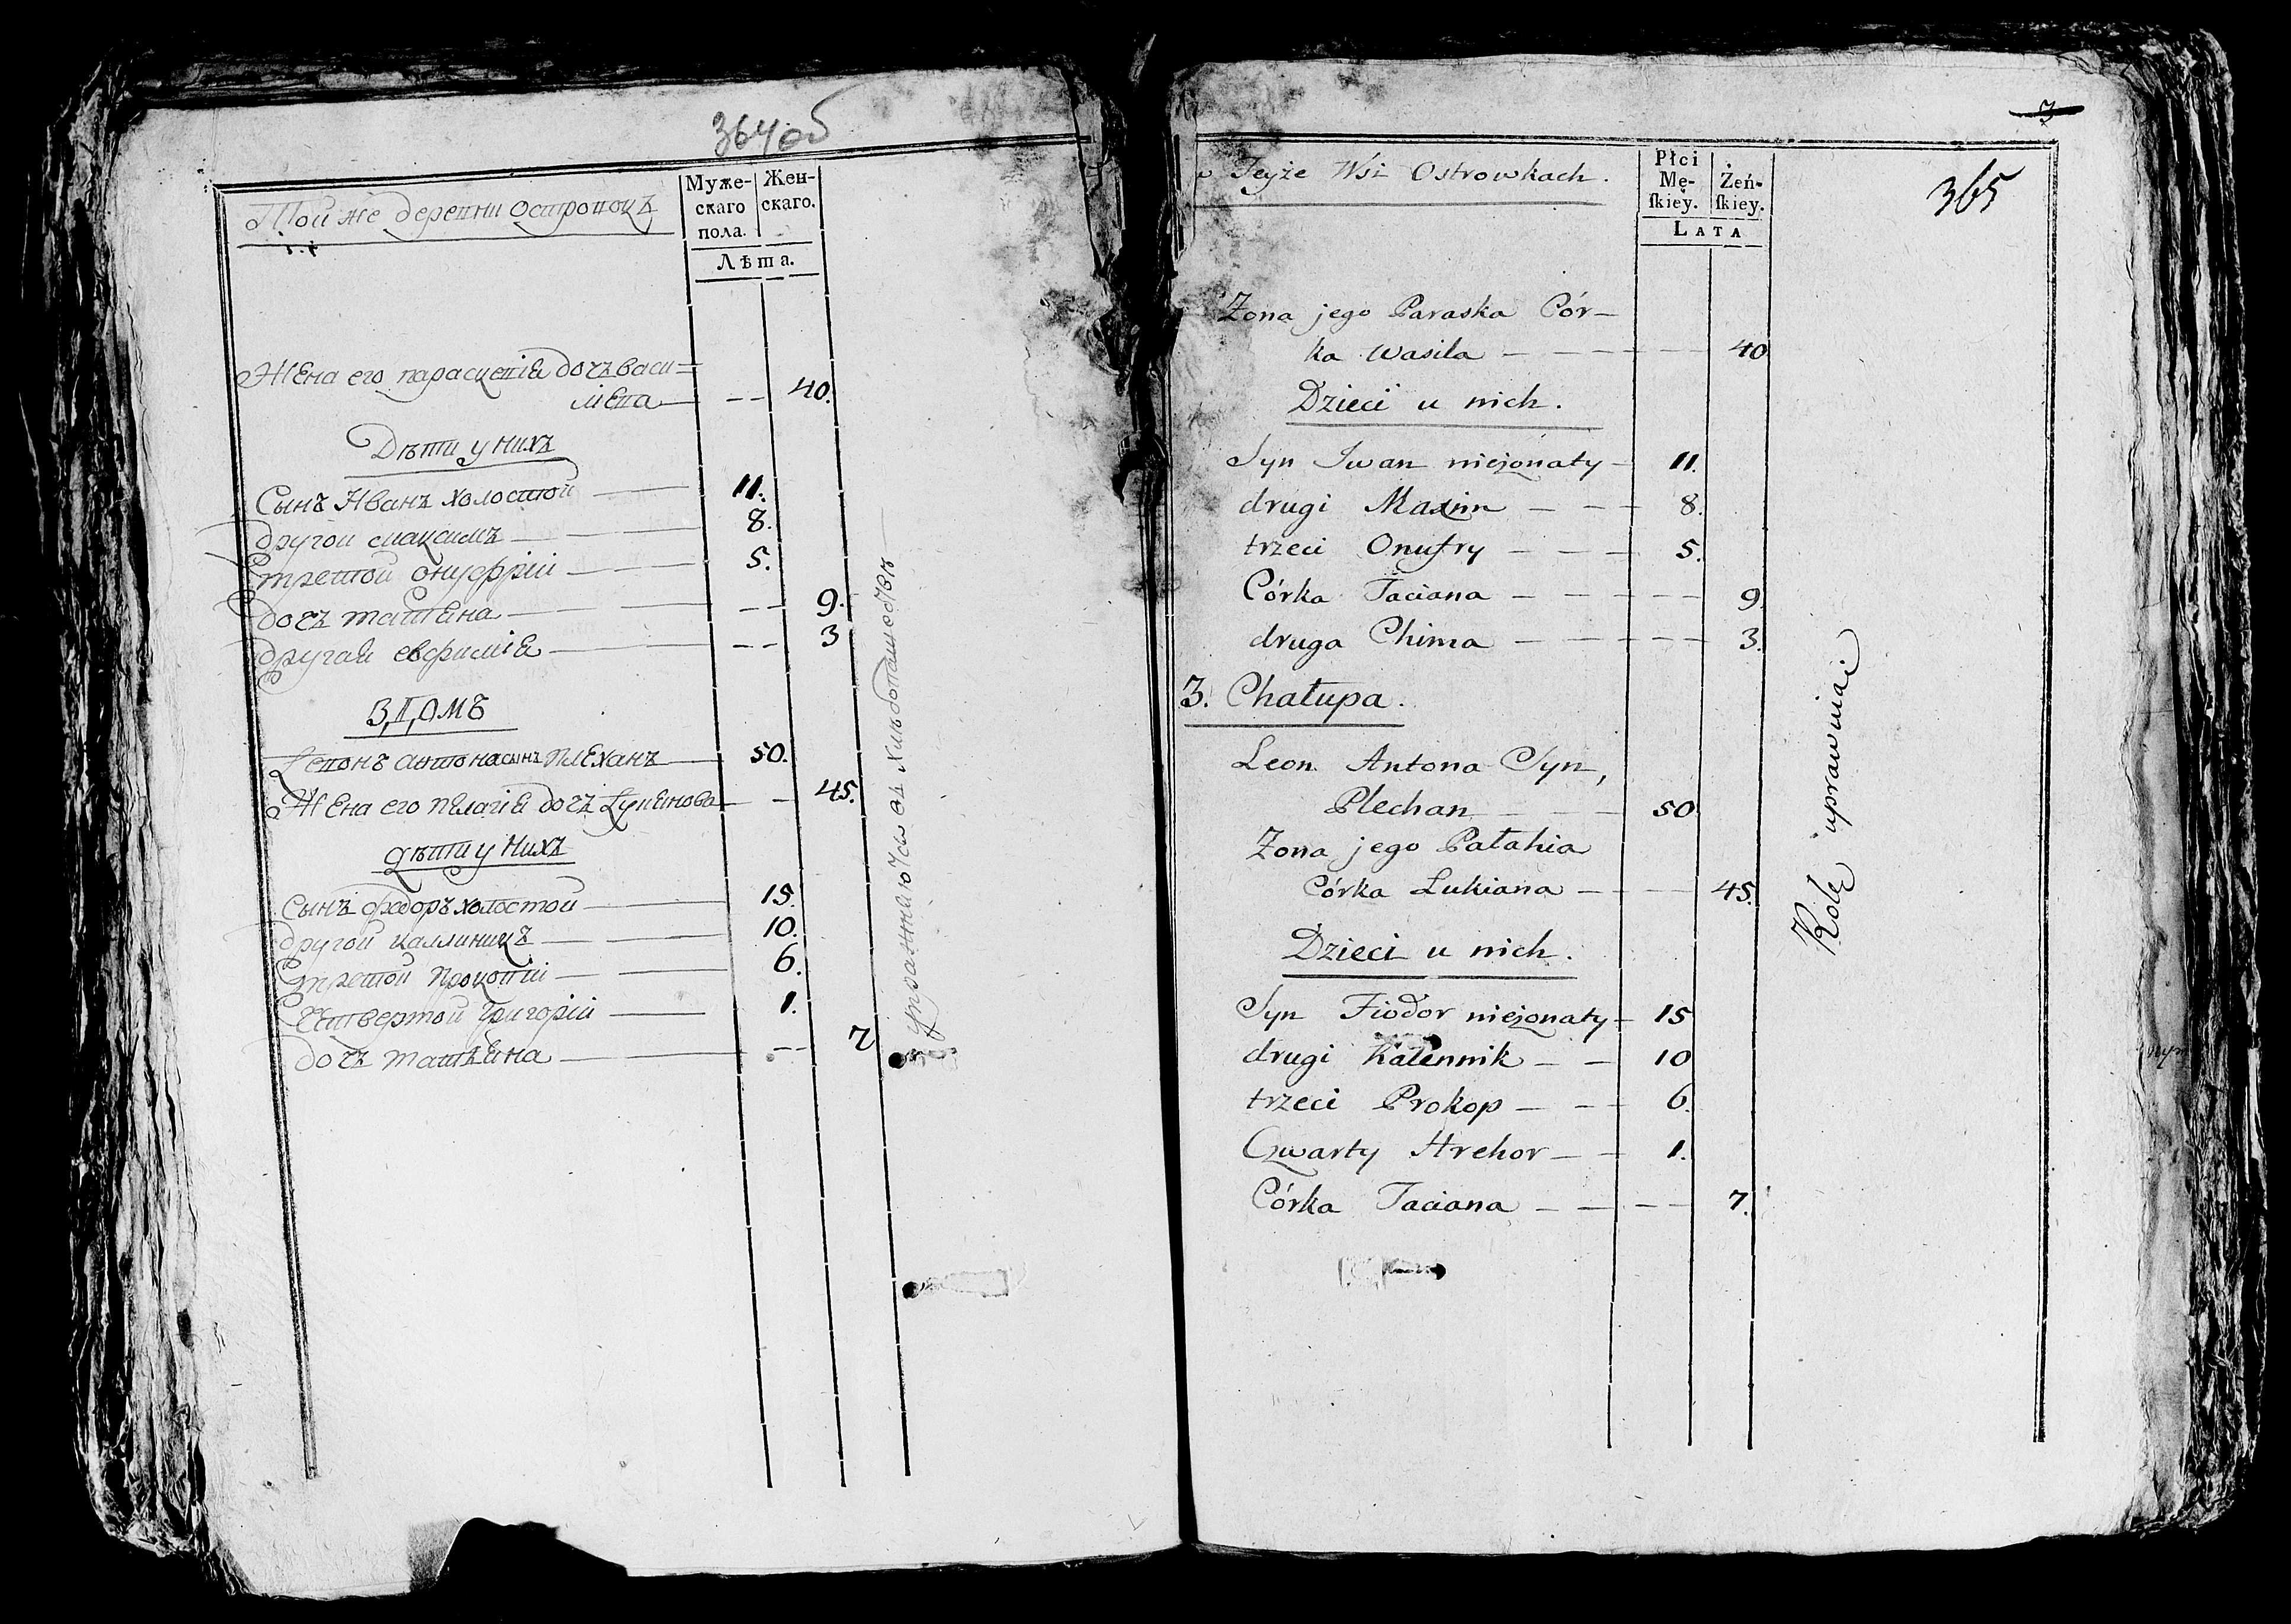 364 об
Той же деревни Островокъ
Муже-
скаго
пола.
Жен-
скаго.
Лѣта.
Жена его параскевія дочь васи=
лıева — -- 40.
Дѣти у нихъ
Сынъ Иванъ холостой — 11.
другой максимъ — 8.
третой онуфрій — 5.
дочь татıана — -- 9.
другая евфимія — -- 3
3, Д, ОМЪ
Леонъ антона сынъ Плеханъ — 50.
Жена его пелагія дочь Лукıянова — - 45.
дѣти у нихъ
Сынъ федоръ холостой — 15.
другой каллиникъ — 10.
третой Прокопій — 6.
Четвертой Григорій — 1.
дочь татıана — -- 7
упражняются въ хлѣбопашествѣ
7
365
w Teyże Wsi Ostrowkach.
Płci
Mę-
skiey.
Żeń-
skiey.
LATA
Żona jego Paraska Cór-
ka Wasila - - - - - 40
Dzieci u nich.
Syn Iwan nieżonaty - 11.
drugi Maxim - - - 8.
trzeci Onufry - - - 5.
Córka Taciana - - - - - 9.
druga Chima - - - - - 3.
3. Chałupa.
Leon Antona Syn,
Plechan - - - 50.
Żona jego Pałahia
Córka Lukiana - - - 45.
Dzieci u nich.
Syn Fiodor nieżonaty - 15
drugi Kalennik - - 10
trzeci Prokop - - - 6.
Czwarty Hrehor - - 1.
Córka Taciana - - - - 7.
Rolę uprawniaią